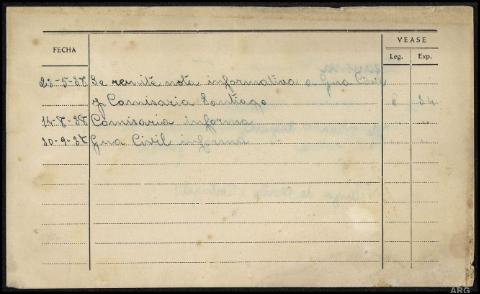 FECHA
VEASE
Leg. Exp.
Se remite nota informativa a Gua Civil
y Comisaria Santiago
Comisaria informa
10-9-38 Gua Civil informa
ARG